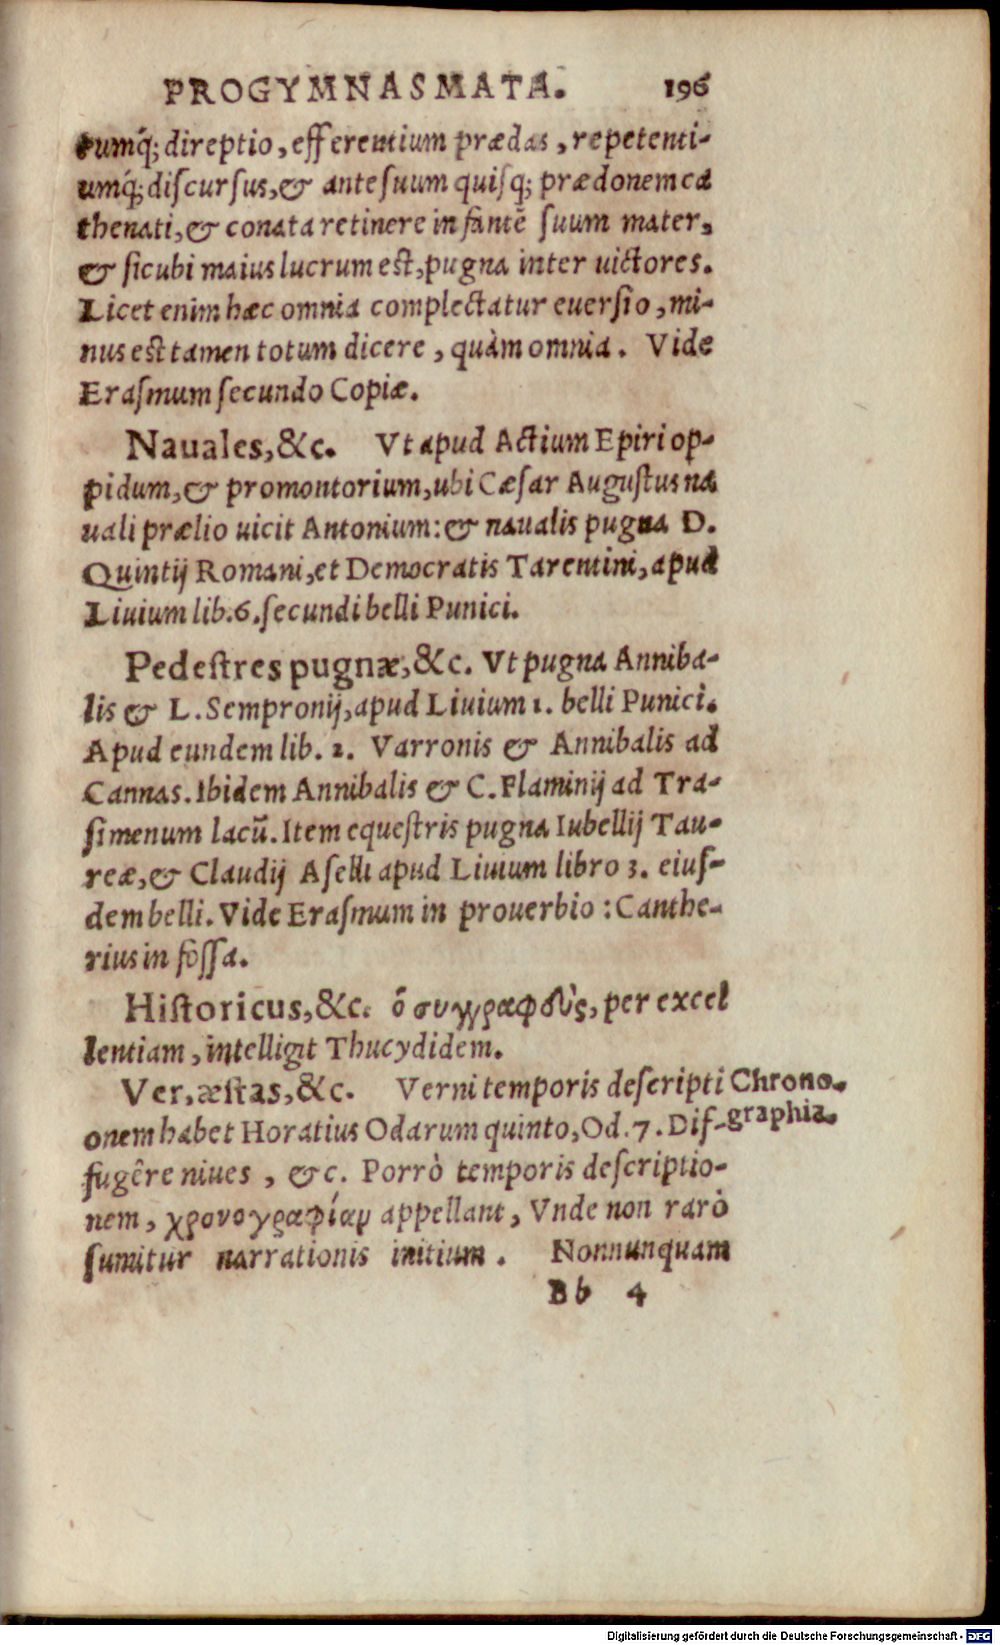 PROGYMNASMATA. 196
rumq́; direptio, efferentium prædas, repetenti-
umq́; discursus, & ante suum quisq; prædonem ca
thenati, & conata retinere infantē suum mater,
& sicubi maius lucrum est, pugna inter uictores.
Licet enim hæc omnia complectatur euersio, mi-
nus est tamen totum dicere, quàm omnia. Vide
Erasmum secundo Copiæ.
Nauales, &c. Vt apud Actium Epiri op-
pidum, & promontorium, ubi Cæsar Augustus na
uali prælio uicit Antonium: & naualis pugna D.
Quintij Romani, et Democratis Tarentini, apud
Liuium lib. 6. secundi belli Punici.
Pedestres pugnæ, &c. Vt pugna Anniba-
lis & L. Sempronij, apud Liuium 1. belli Punici.
Apud eundem lib. 2. Varronis & Annibalis ad
Cannas. Ibidem Annibalis & C. Flaminij ad Tra-
simenum lacū. Item equestris pugna Iubellij Tau-
reæ, & Claudij Aselli apud Liuium libro 3. eius-
dem belli. Vide Erasmum in prouerbio: Canthe-
rius in fossa.
Historicus, &c. ὁ συγγραφεὺς, per excel
lentiam, intelligit Thucydidem.
Ver, æstas, &c. Verni temporis descripti
onem habet Horatius Odarum quinto, Od. 7. Dif-
fugêre niues, &c. Porrò temporis descriptio-
nem, χρονογραφίαν appellant, Vnde non rarò
sumitur narrationis initium. Nonnunquam
Chrono-
graphia.
Bb 4
Digitalisierung gefördert durch die Deutsche Forschungsgemeinschaft - DFG